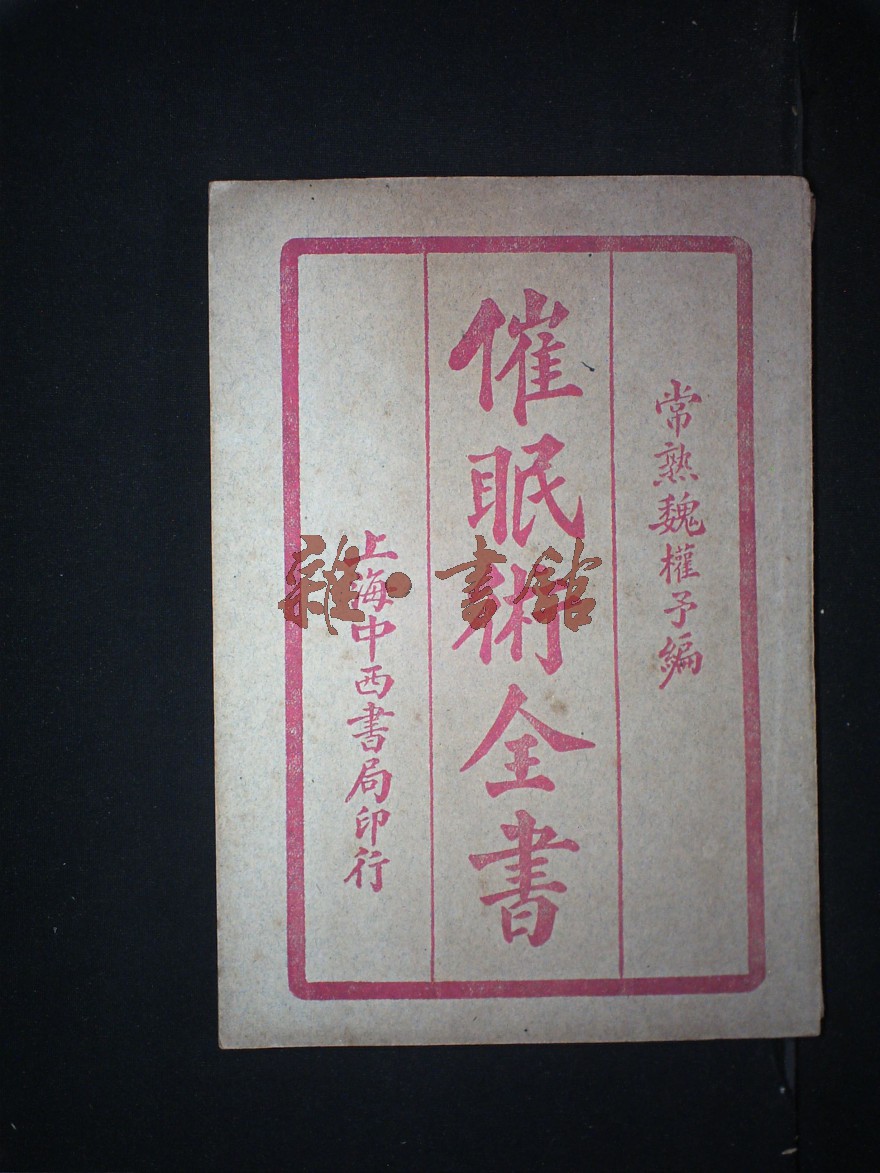 常熟魏權予編
催眠術全書
上海中西書局印行
雜·書館